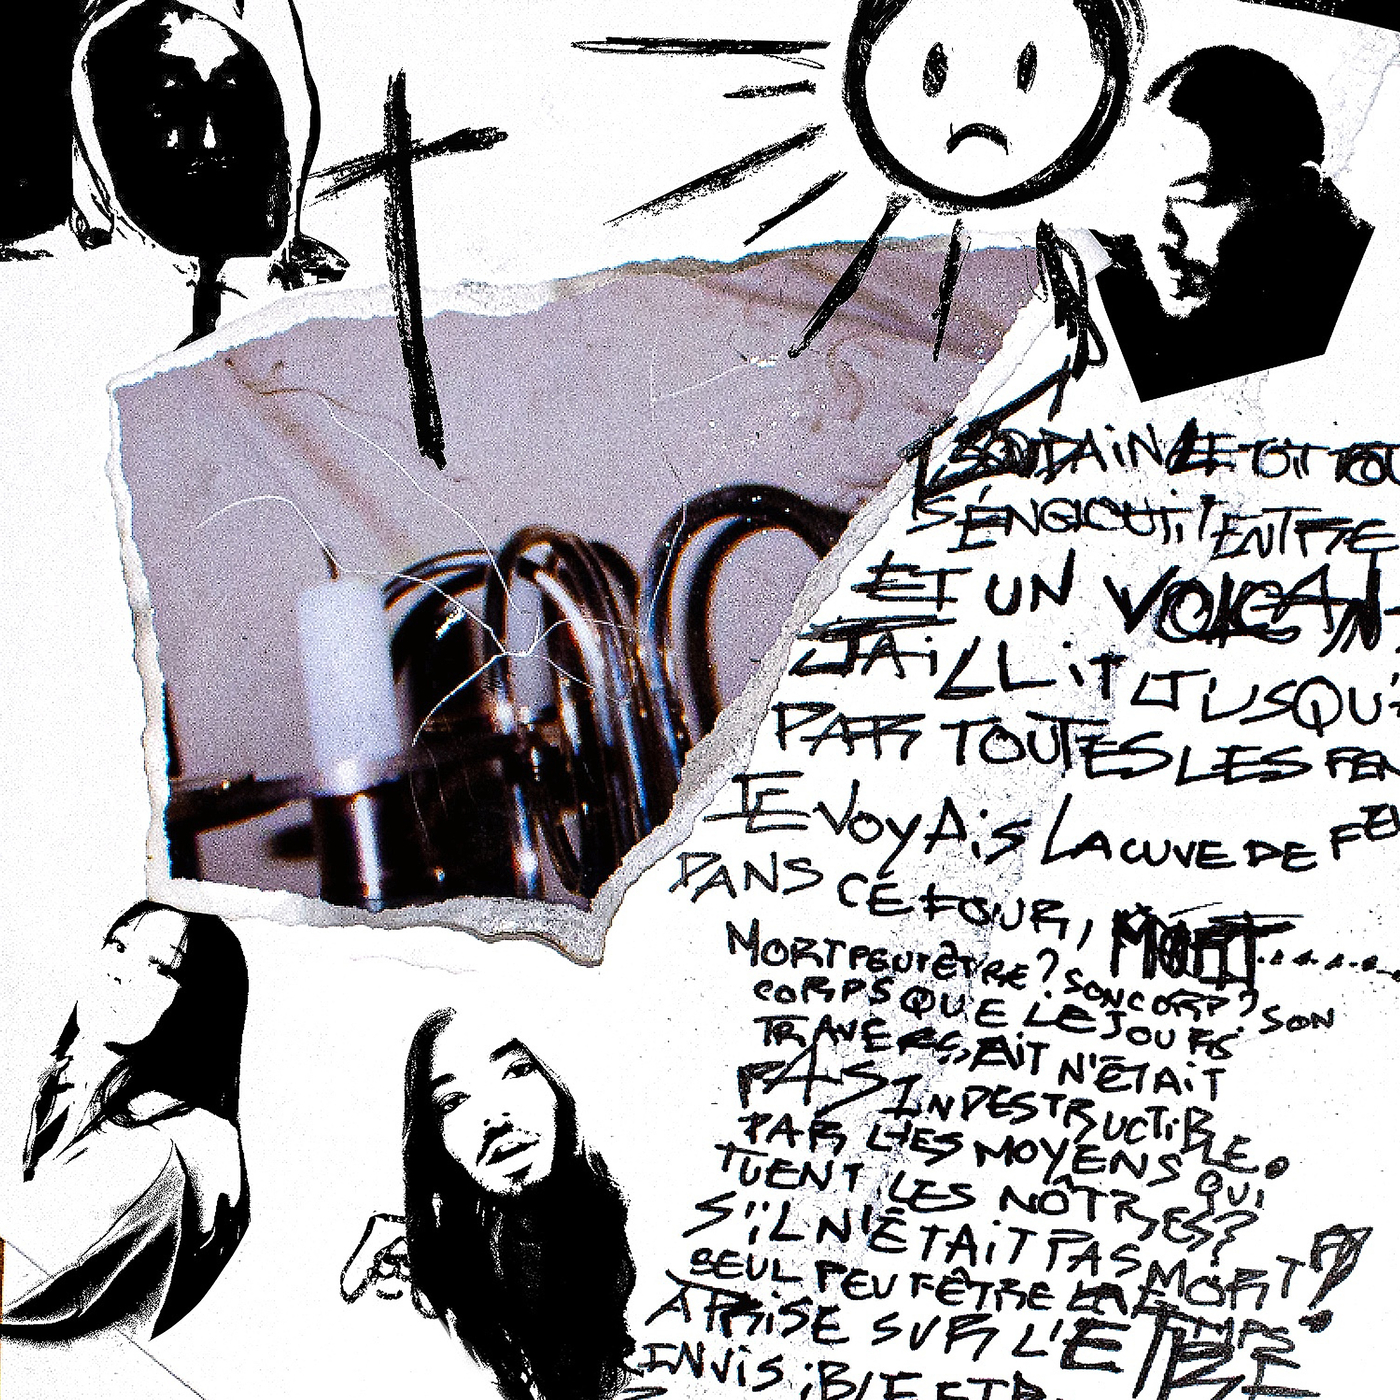 SOUDAIN LE TOIT TOU
S'ENGLOUTIT ENTRE
ET UN VOLCAN
JAILLIT JUSQU'
PAR TOUTES LES FEN
JE VOYAIS LA CUVE DE FEU
DANS CE FOUR, MORT........
MORT PEUT ÊTRE? SON CORP? SON
CORPS QUE LE JOUR
TRAVERSAIT N'ÉTAIT
PAS INDESTRUCTIBLE.
PAR LES MOYENS QUI
TUENT LES NÔTRES?
S'IL N'ÉTAIT PAS MORT?
SEUL PEUT ÊTRE LE TEMPS
A PRISE SUR L'ETRE
INVISIBLE ET